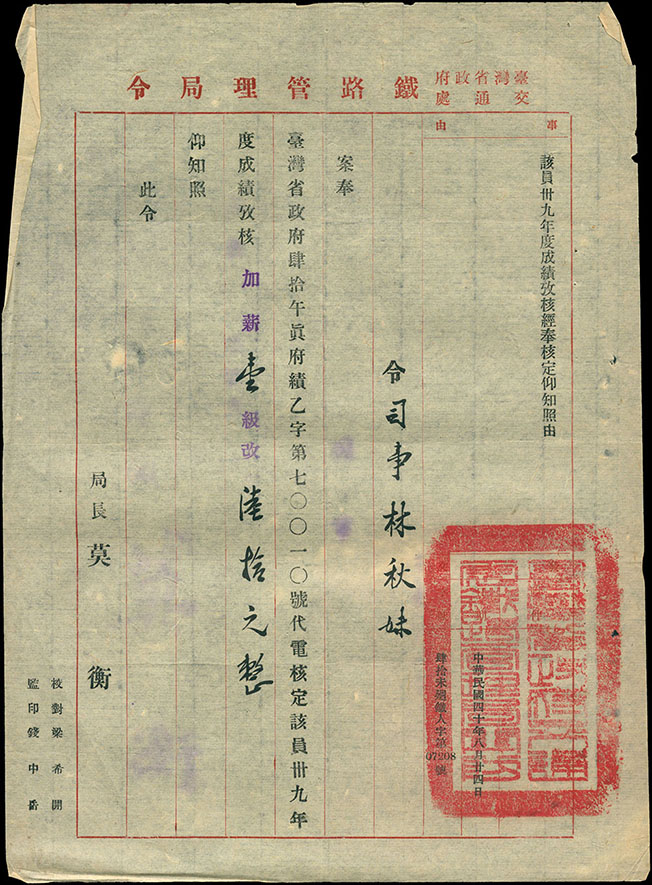 臺灣省政府
交通處
鐵路管理局令
事由
該員卅九年度成績攷核經奉核定仰知照由
中華民國四十年八月廿四日
肆拾未迴鐵人字第07208號
令司事林秋妹
案奉
臺灣省政府肆拾午眞府績乙字第七〇〇一〇號代電核定該員卅九年
度成績攷核加薪壹級改陸拾元整
仰知照
此令
局長莫衡
校對梁希開
監印錢中岳